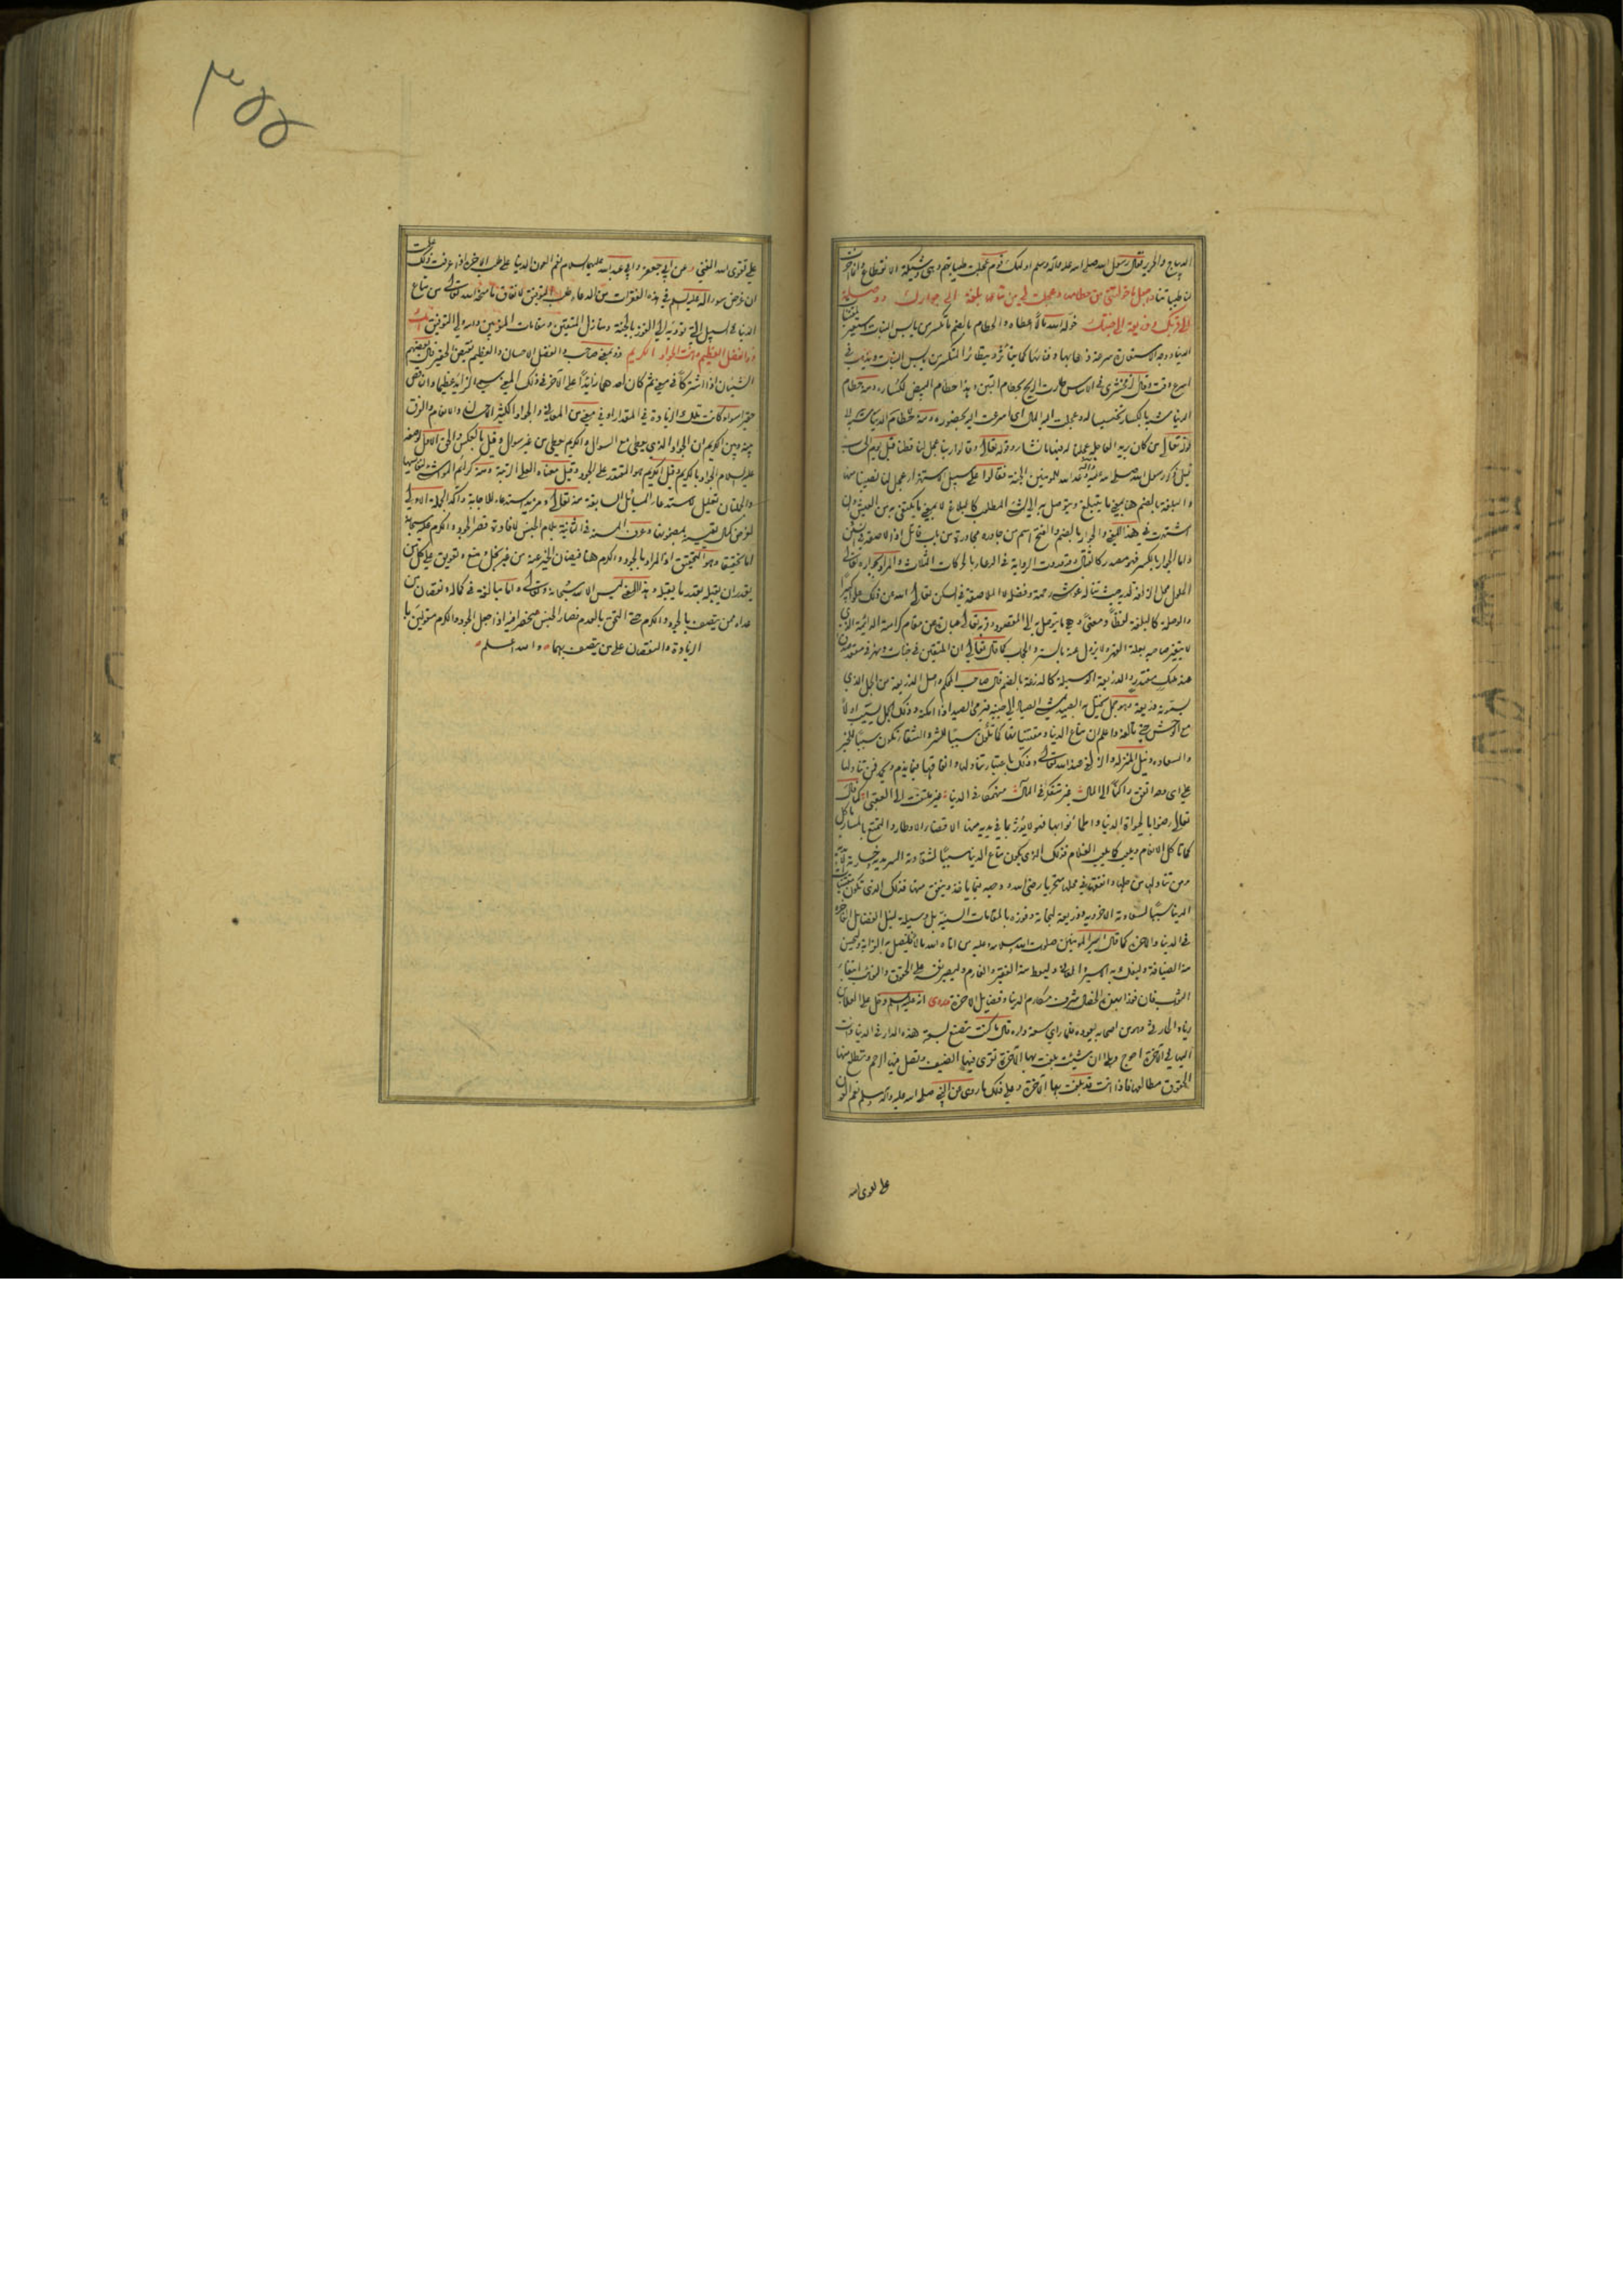 الديباج والحرير فقال رسول الله صلى الله عليه وآله وسلم اولئك قوم عجلت طيباتهم وهى وشيكة الانقطاع وانما اخرت
لنا طيباتنا واجعل ما خولتنى من حطامها وعجلت لى من متاعها بلغة الى جوارك ووصلة
الى قربك وذريعة الى جنتك خوله الله مالا اعطاه والحطام بالضم ما تكسر من يابس النبات
الدنيا ووجه الاستعارة سرعة ذهابها وفنائها كما يتأثر ويتطاير المتكسر من يبس النبات ويذهب فى
اسرع وقت وقال الزمخشرى فى الاساس طارت الريح بحطام التبن وهذا حطام البيض لكساره ومنه حطام
الدنيا شبه بالكسار تخسيسا له وعجلت اليه المال اى اسرعت اليه بحضوره ومنه
قوله تعالى من كان يريد العاجلة عجلنا له فيها ما نشاء وقوله تعالى وقالوا ربنا عجل لنا قطنا قبل يوم الحساب
قيل ذكر رسول الله صلى الله عليه وآله وعد الله المؤمنين الجنة فقالوا على سبيل الاستهزاء عجل لنا نصيبنا منها
والبلغة بالضم هنا بمعنى ما يتبلغ ويتوصل به الى الشئ المطلوب كالبلاغ لا بمعنى ما يكتفى به من العيش وان
اشتهرت فى هذا المعنى والجوار بالضم والفتح اسم من جاوره مجاورة من باب قاتل اذا لاصقه فى السكن
واما الجوار بالكسر فهو مصدر كالقتال وقد وردت الرواية فى الدعاء بالحركات الثلاث والمراد بجواره تعالى
المعلى محل الزلفة لديه بحيث تناله غواشى رحمته وفضله لا الملاصقة فى السكن تعالى الله عن ذلك علوا كبيرا
والوصلة كالبلغة لفظا ومعنى وهى ما يتوصل به الى المقصود وقربه تعالى عبارة عن مقام كرامته الدائمة الذى
لا يتغير صاحبه بعلة القهر ولا يزول عنه بالستر والحجاب كما قال تعالى ان المتقين فى جنات ونهر فى مقعد صدق
عند مليك مقتدر والذريعة الوسيلة كالذرعة بالضم قال صاحب المحكم واصل الذريعة من الجمل الذى
يستتر به ذريعة وهو جمل يختل به الصيد يمشى الصياد الى جنبه فيرمى الصيد اذا امكنه وذلك الجمل يسيب اولا
مع الوحش حتى تألفه واعلم ان متاع الدنيا ومقتنياتها كما تكون سببا للشر والشقاء تكون سببا للخير
والسعادة ونيل المنزلة والزلفى عند الله تعالى وذلك باعتبار تناولها وانفاقها فيما يذم ويحمد فمن تناولها
على اى وجه اتفق راكنا الى المال غير متفكر فى المآل منهمكا فى الدنيا غير ملتفت الى العقبى كما قال
تعالى رضوا بالحيوة الدنيا واطمأنوا بها فهو لا يؤثر بما فى يديه منها الا قضاء الاوطار والتمتع بالمسار يأكل
كما تأكل الانعام ويلعب كما يلعب الغلام فذلك الذى يكون متاع الدنيا سببا لشقاوته السرمدية وخسارته الابدية
ومن تناولها من حلها وانفقها فى محلها متحريا رضى الله ووجهه فيما يأخذ وينفق منها فذلك الذى تكون مقتنيات
الدنيا سببا لسعادته الاخروية وذريعة لنجاته وفوزه بالمقامات السنية بل وسيلة لنيل الفضائل الفاخرة
فى الدنيا والآخرة كما قال امير المؤمنين صلوات الله وسلامه عليه من اتاه الله مالا فليصل به القرابة وليحسن
منه الضيافة وليفك به الاسير والعانى وليعط منه الفقير والغارم وليصبر نفسه على الحقوق والنوائب ابتغاء
الثواب فان فوزا بهذه الخصال شرف مكارم الدنيا ودرك فضائل الآخرة وروى انه عليه السلم دخل على العلاء بن
زياد الحارثى وهو من اصحابه يعوده فلما رأى سعة داره قال ما كنت تصنع بسعة هذه الدار فى الدنيا وانت
اليها فى الآخرة احوج وبلى ان شئت بلغت بها الآخرة تقرى فيها الضيف وتصل فيها الرحم وتطلع منها
الحقوق مطالعها فاذا انت قد بلغت بها الآخرة وعلى ذلك ما روى عن النبى صلى الله عليه وآله وسلم نعم العون
على تقوى الله
٣٥٥
على تقوى الله الغنى وعن ابى جعفر وابى عبد الله عليهما السلام نعم العون الدنيا على طلب الآخرة اذا عرفت ذلك علمت
ان غرض سؤاله عليه السلم فى هذه الفقرات من الدعاء طلب التوفيق لانفاق ما منحه الله تعالى من متاع
الدنيا فى السبيل التى تؤديه الى الفوز بالجنة ومنازل المتقين ومقامات المؤمنين والله ولى التوفيق انك
ذو الفضل العظيم وانت الجواد الكريم ذو بمعنى صاحب والفضل الاحسان والعظيم نقيض الحقير قال بعضهم
الشيئان اذا اشتركا فى معنى ثم كان احدهما زايدا على الآخر فى ذلك المعنى سمى الزائد عظيما والناقص
حقيرا سواء كانت تلك الزيادة فى المقدار او فى معنى من المعانى والجواد الكثير الاحسان والانعام والفرق
بينه وبين الكريم ان الجواد الذى يعطى مع السؤال والكريم يعطى من غير سؤال وقيل بالعكس والحق الاول لوصفه
عليه السلام الجواد بالكريم وقيل الكريم هو المقتدر على الجود وقيل معناه العلى الرتبة ومنه كرائم المواشى لنفائسها
والجملتان تعليل لاستدعاء المسائل السابقة منه تعالى ومزيد استدعاء للاجابة واكد الجملة الاولى
لغرض كمال يقينه بمضمونها وعرف المسند فى الثانية بلام الجنس لافادة قصر الجود والكرم عليه سبحانه
اما تحقيقا وهو التحقيق اذ المراد بالجود والكرم هنا فيضان الخير عنه من غير بخل ومنع وتعويق على كل من
يقدر ان يقبله بقدر ما يقبله وهذا المعنى ليس الا له سبحانه وتعالى واما مبالغة فى كماله ونقصان من
عداه ممن يتصف بالجود والكرم حتى التحق بالعدم فصار الجنس منحصرا فيه اذا جعل الجود والكرم مقولين با
الزيادة والنقصان على من يتصف بهما والله اعلم